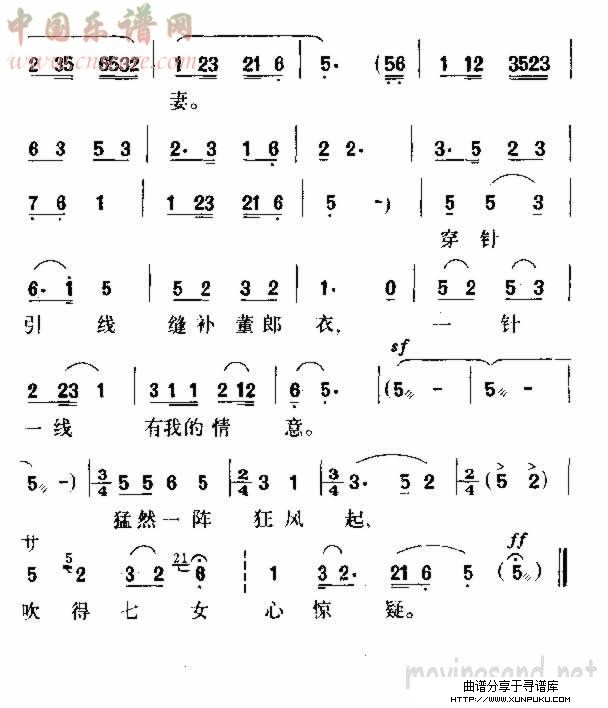 中国乐谱网
www.cnscore.com
2 35 6532 | 1 23 21 6 | 5· (56 | 1 12 3523 |
妻。
6 3 5 3 | 2· 3 1 6 | 2 2· | 3· 5 2 3 |
7 6 1 | 1 23 21 6 | 5 -) | 5 5 3 |
穿针
6· 1 5 | 5 2 3 2 | 1· 0 | 5 2 5 3 |
引 线 缝补 董郎 衣, 一 针
sf
2 23 1 | 3 1 1 2 12 | 6 5· | (5 - | 5 - |
一线 有我的情 意。
5 -) | 3/4 5 5 6 5 | 2/4 3 1 | 3/4 3· 5 2 | 2/4 (5 2) |
猛然一阵 狂风 起,
サ ff
5 5 2 3 2 21 6 | 1 3 2· 21 6 5 (5) ‖
吹 得 七 女 心 惊 疑。
movingsand.net
曲谱分享于寻谱库
HTTP://WWW.XUNPUKU.COM